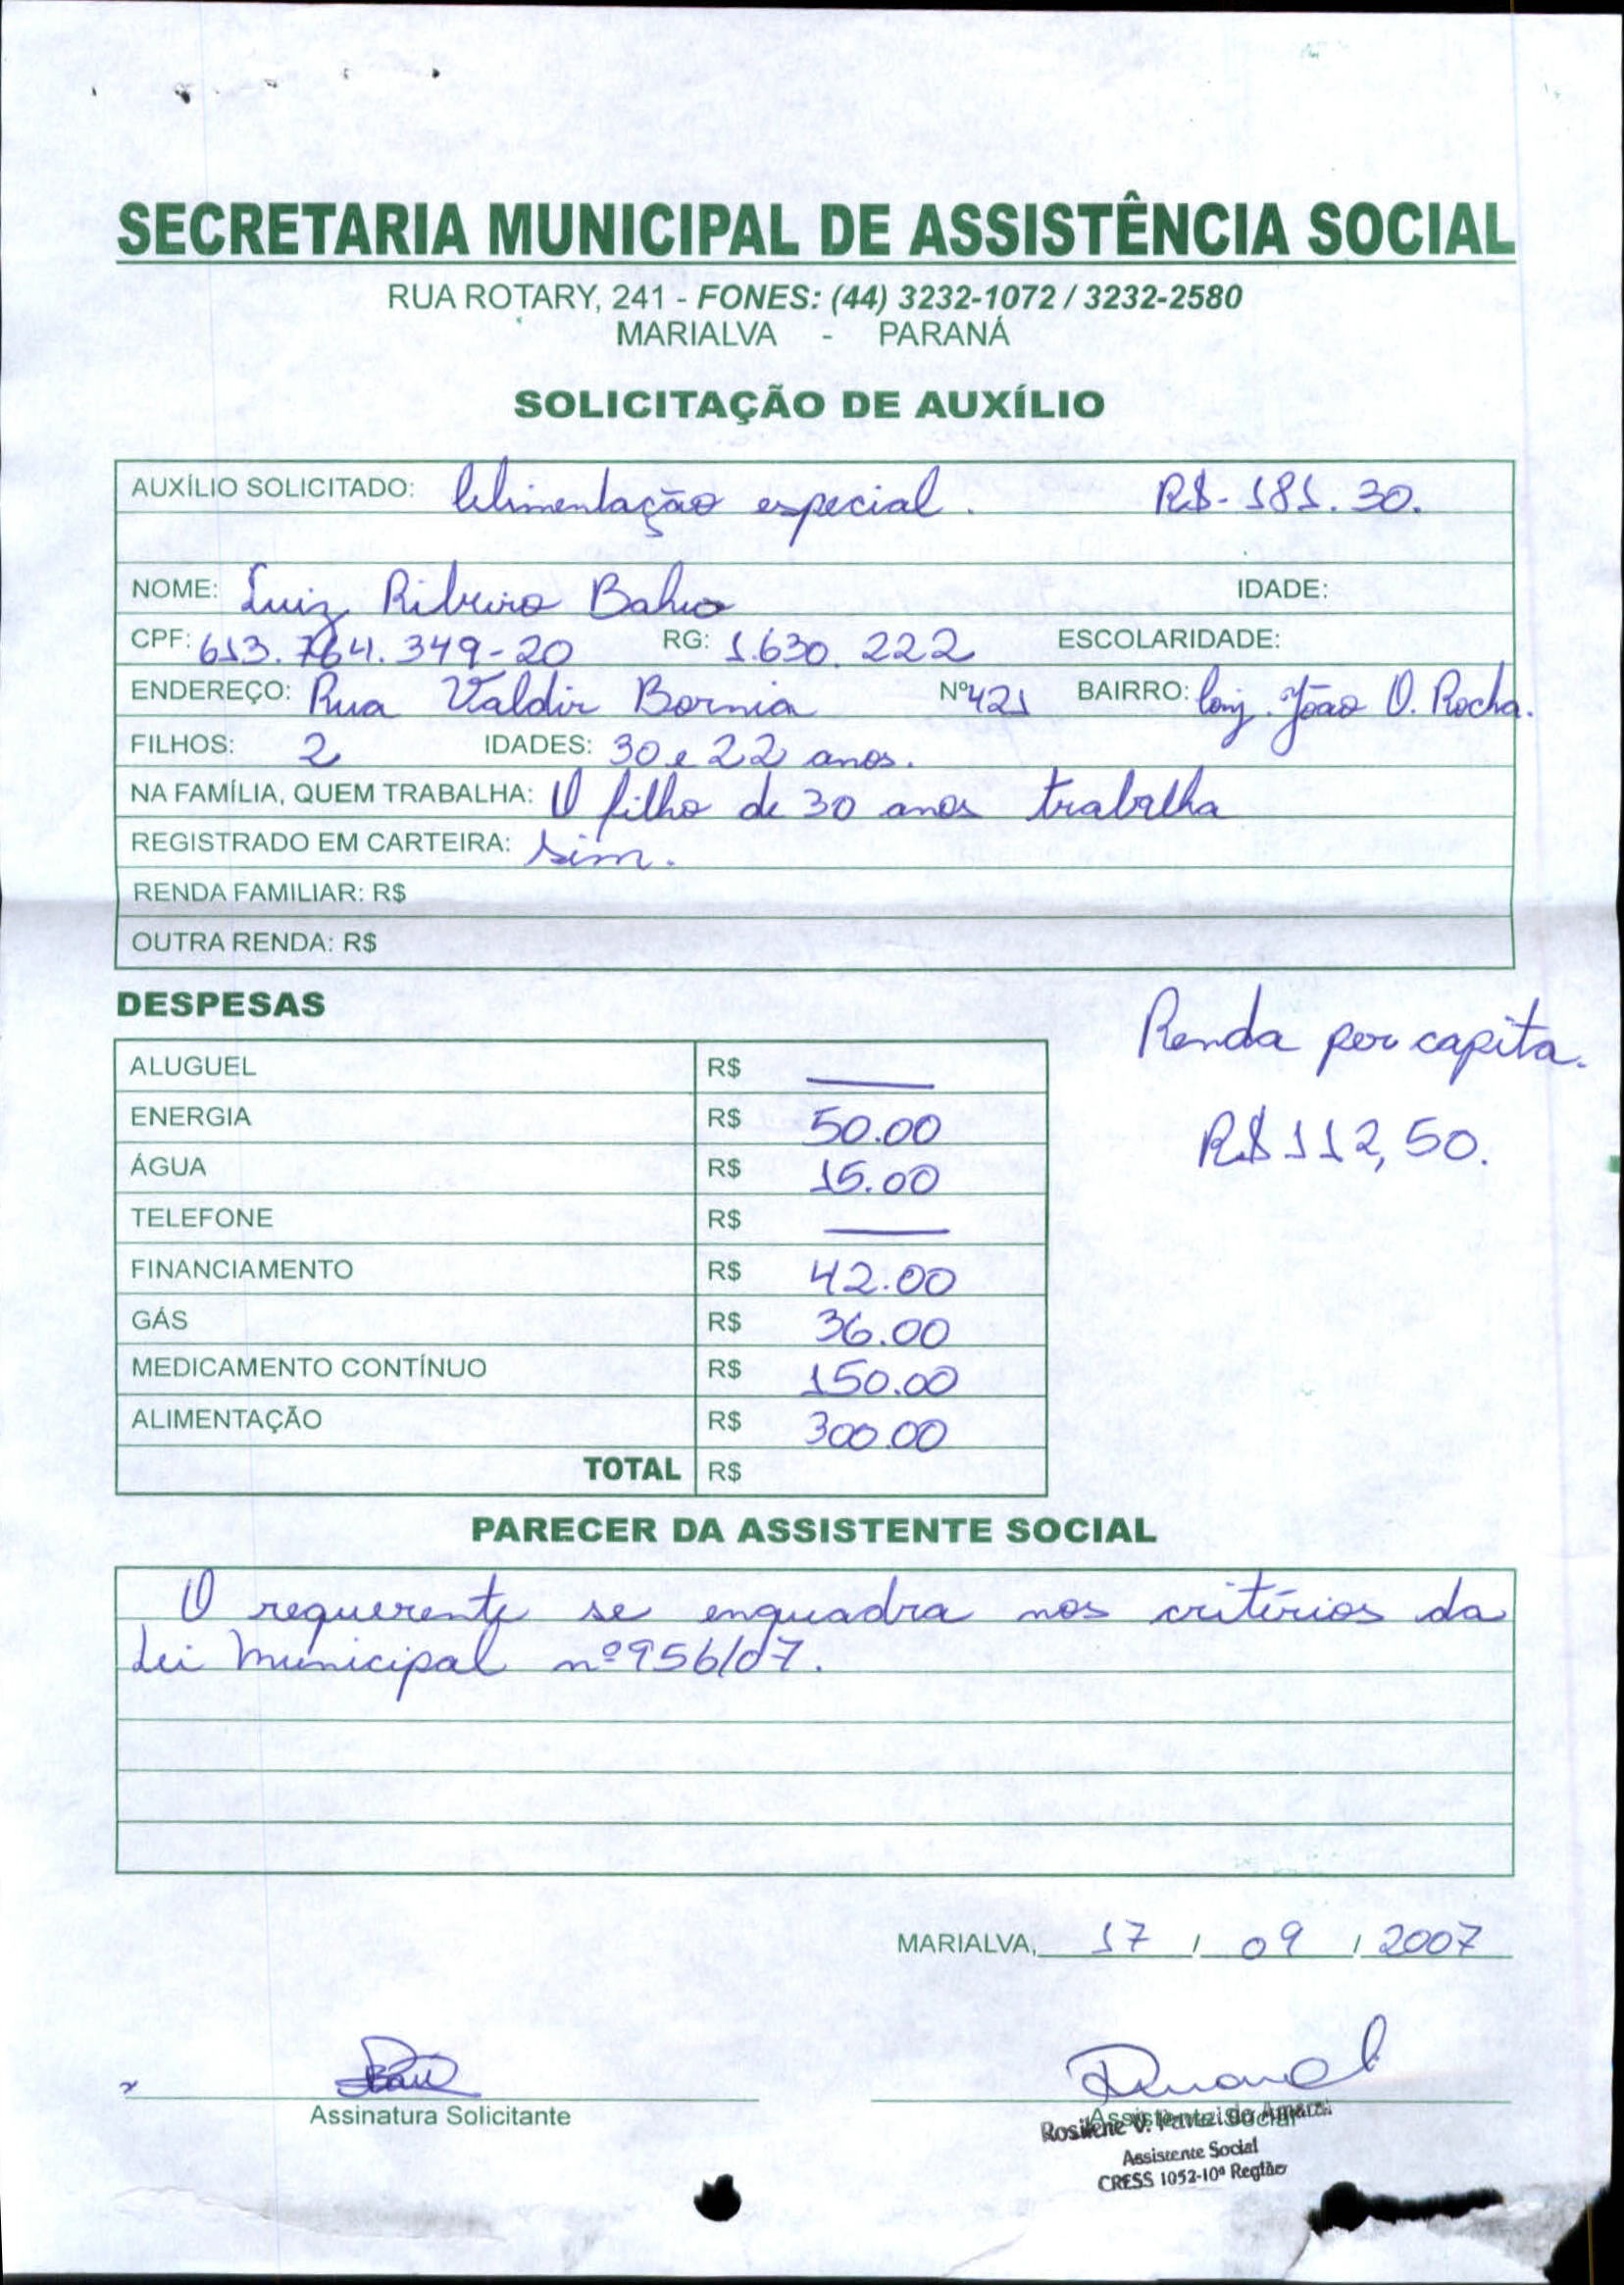 SECRETARIA MUNICIPAL DE ASSISTÊNCIA SOCIAL
RUA ROTARY, 241 - FONES: (44) 3232-1072 / 3232-2580
MARIALVA - PARANÁ
SOLICITAÇÃO DE AUXÍLIO
AUXÍLIO SOLICITADO: Alimentação especial. R$- 181.30.
NOME: Luiz Ribeiro IDADE:
CPF: 613.764.349-20 RG: 1.630.222 ESCOLARIDADE:
ENDEREÇO: Rua Valdir Bornia Nº 421 BAIRRO: Conj. João O. Rocha.
FILHOS: 2 IDADES: 30 e 22 anos.
NA FAMÍLIA, QUEM TRABALHA: O filho de 30 anos trabalha
REGISTRADO EM CARTEIRA: sim.
RENDA FAMILIAR: R$
OUTRA RENDA: R$
DESPESAS
Renda per capita.
R$ 112,50.
ALUGUEL R$ ——
ENERGIA R$ 50.00
ÁGUA R$ 15.00
TELEFONE R$ ——
FINANCIAMENTO R$ 42.00
GÁS R$ 36.00
MEDICAMENTO CONTÍNUO R$ 150.00
ALIMENTAÇÃO R$ 300.00
TOTAL R$
PARECER DA ASSISTENTE SOCIAL
O requerente se enquadra nos critérios da
Lei Municipal nº 956/07.
MARIALVA, 17 / 09 / 2007
Assinatura Solicitante
Assistente Social
Rosilene V. do Amaral
Assistente Social
CRESS 1052-10ª Região